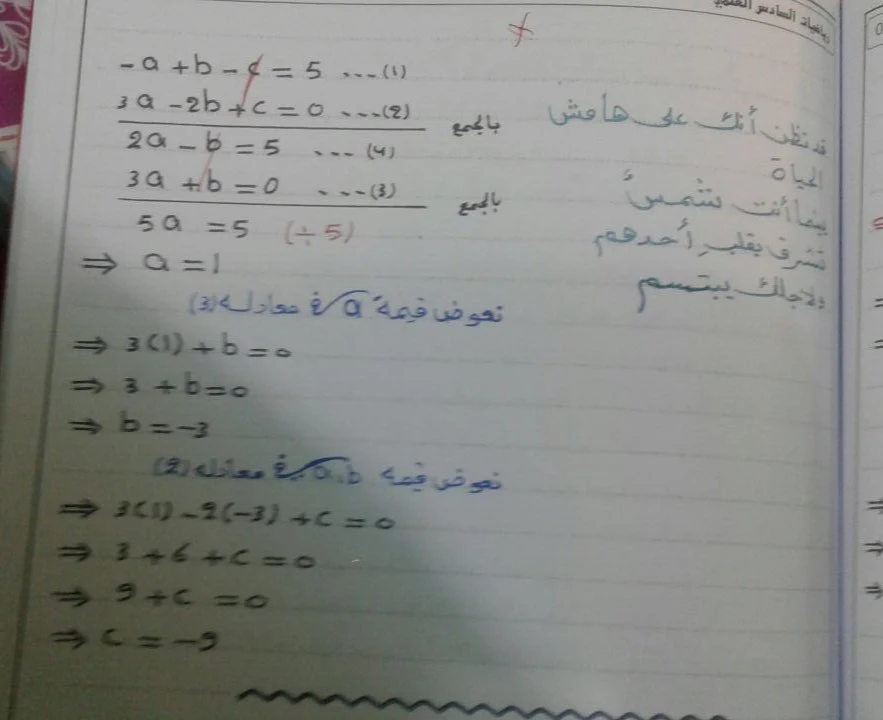 رياضيات السادس العلمي
-a + b - c = 5 ---(1)
3a - 2b + c = 0 ---(2)
بالجمع
2a - b = 5 ---(4)
3a + b = 0 ---(3)
بالجمع
5a = 5 (÷5)
⇒ a = 1
نعوض قيمة a في معادلة (3)
⇒ 3(1) + b = 0
⇒ 3 + b = 0
⇒ b = -3
نعوض قيمة a,b في معادلة (2)
⇒ 3(1) - 2(-3) + c = 0
⇒ 3 + 6 + c = 0
⇒ 9 + c = 0
⇒ c = -9
قد تظن أنك على هامش
الحياة
بينما أنت شمسٌ
تشرق بقلبِ أحدهم
ولاجلك يبتسم